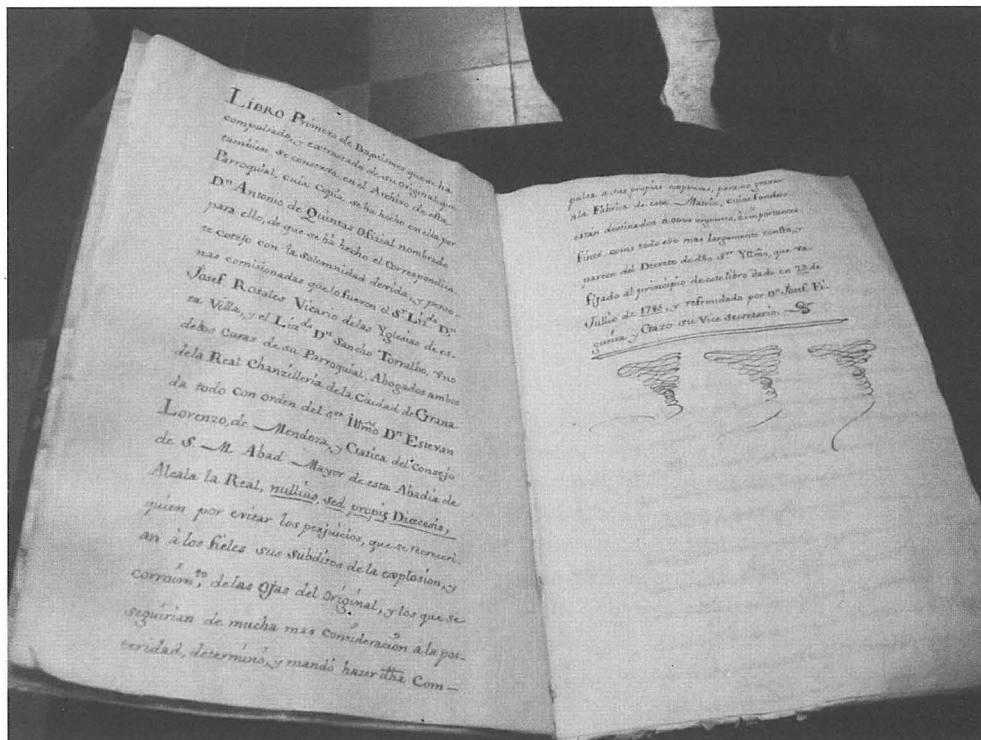 LIBRO Primero de Baptismos que se ha
compulsado, y extractado de su original, que
tambien se conserva en el Archivo de esta
Parroquial, cuia copia se ha hecho en ella por
Dn Antonio de Quintas Oficial nombrado
para ello, de que se há hecho el correspondien-
te cotejo con la solemnidad devida, y perso-
nas comisionadas que lo fueron el Sr. Lizdo Dn
Josef Rosales Vicario de las Yglesias de es-
ta Villa, y el Lizdo Dn Sancho Torralbo, vno
delos Curas de su Parroquial, Abogados ambos
dela Real Chanzilleria de la Ciudad de Grana
da todo con orden del Sor Illmo Dn Estevan
Lorenzo, de Mendoza, y Gatica del Consejo
de S. M. Abad Mayor de esta Abadia de
Alcala la Real, nullius, sed propis Diœcesis,
quien por evitar los perjuicios, que se recreceri-
an à los fieles sus subditos de la explosion, y
corroimto, de las Ojas del original, y los que se
seguirian de mucha mas consideracion à la pos-
teridad, determinò, y mandò hazer dha Com-
pulsa a sus propias expensas, para no gravar
ala Fabrica de esta Matriz, cuios fondos
estàn destinados à otros urgentes, è importantes
fines como todo ello mas largamente consta, y
parece del Decreto de dho Sor Yltmo, que va
fijado al principio de este libro dado en de
Julio de 1785, y refrendado por Dn Josef Fi-
gueira y Gazo su Vice Secretario.